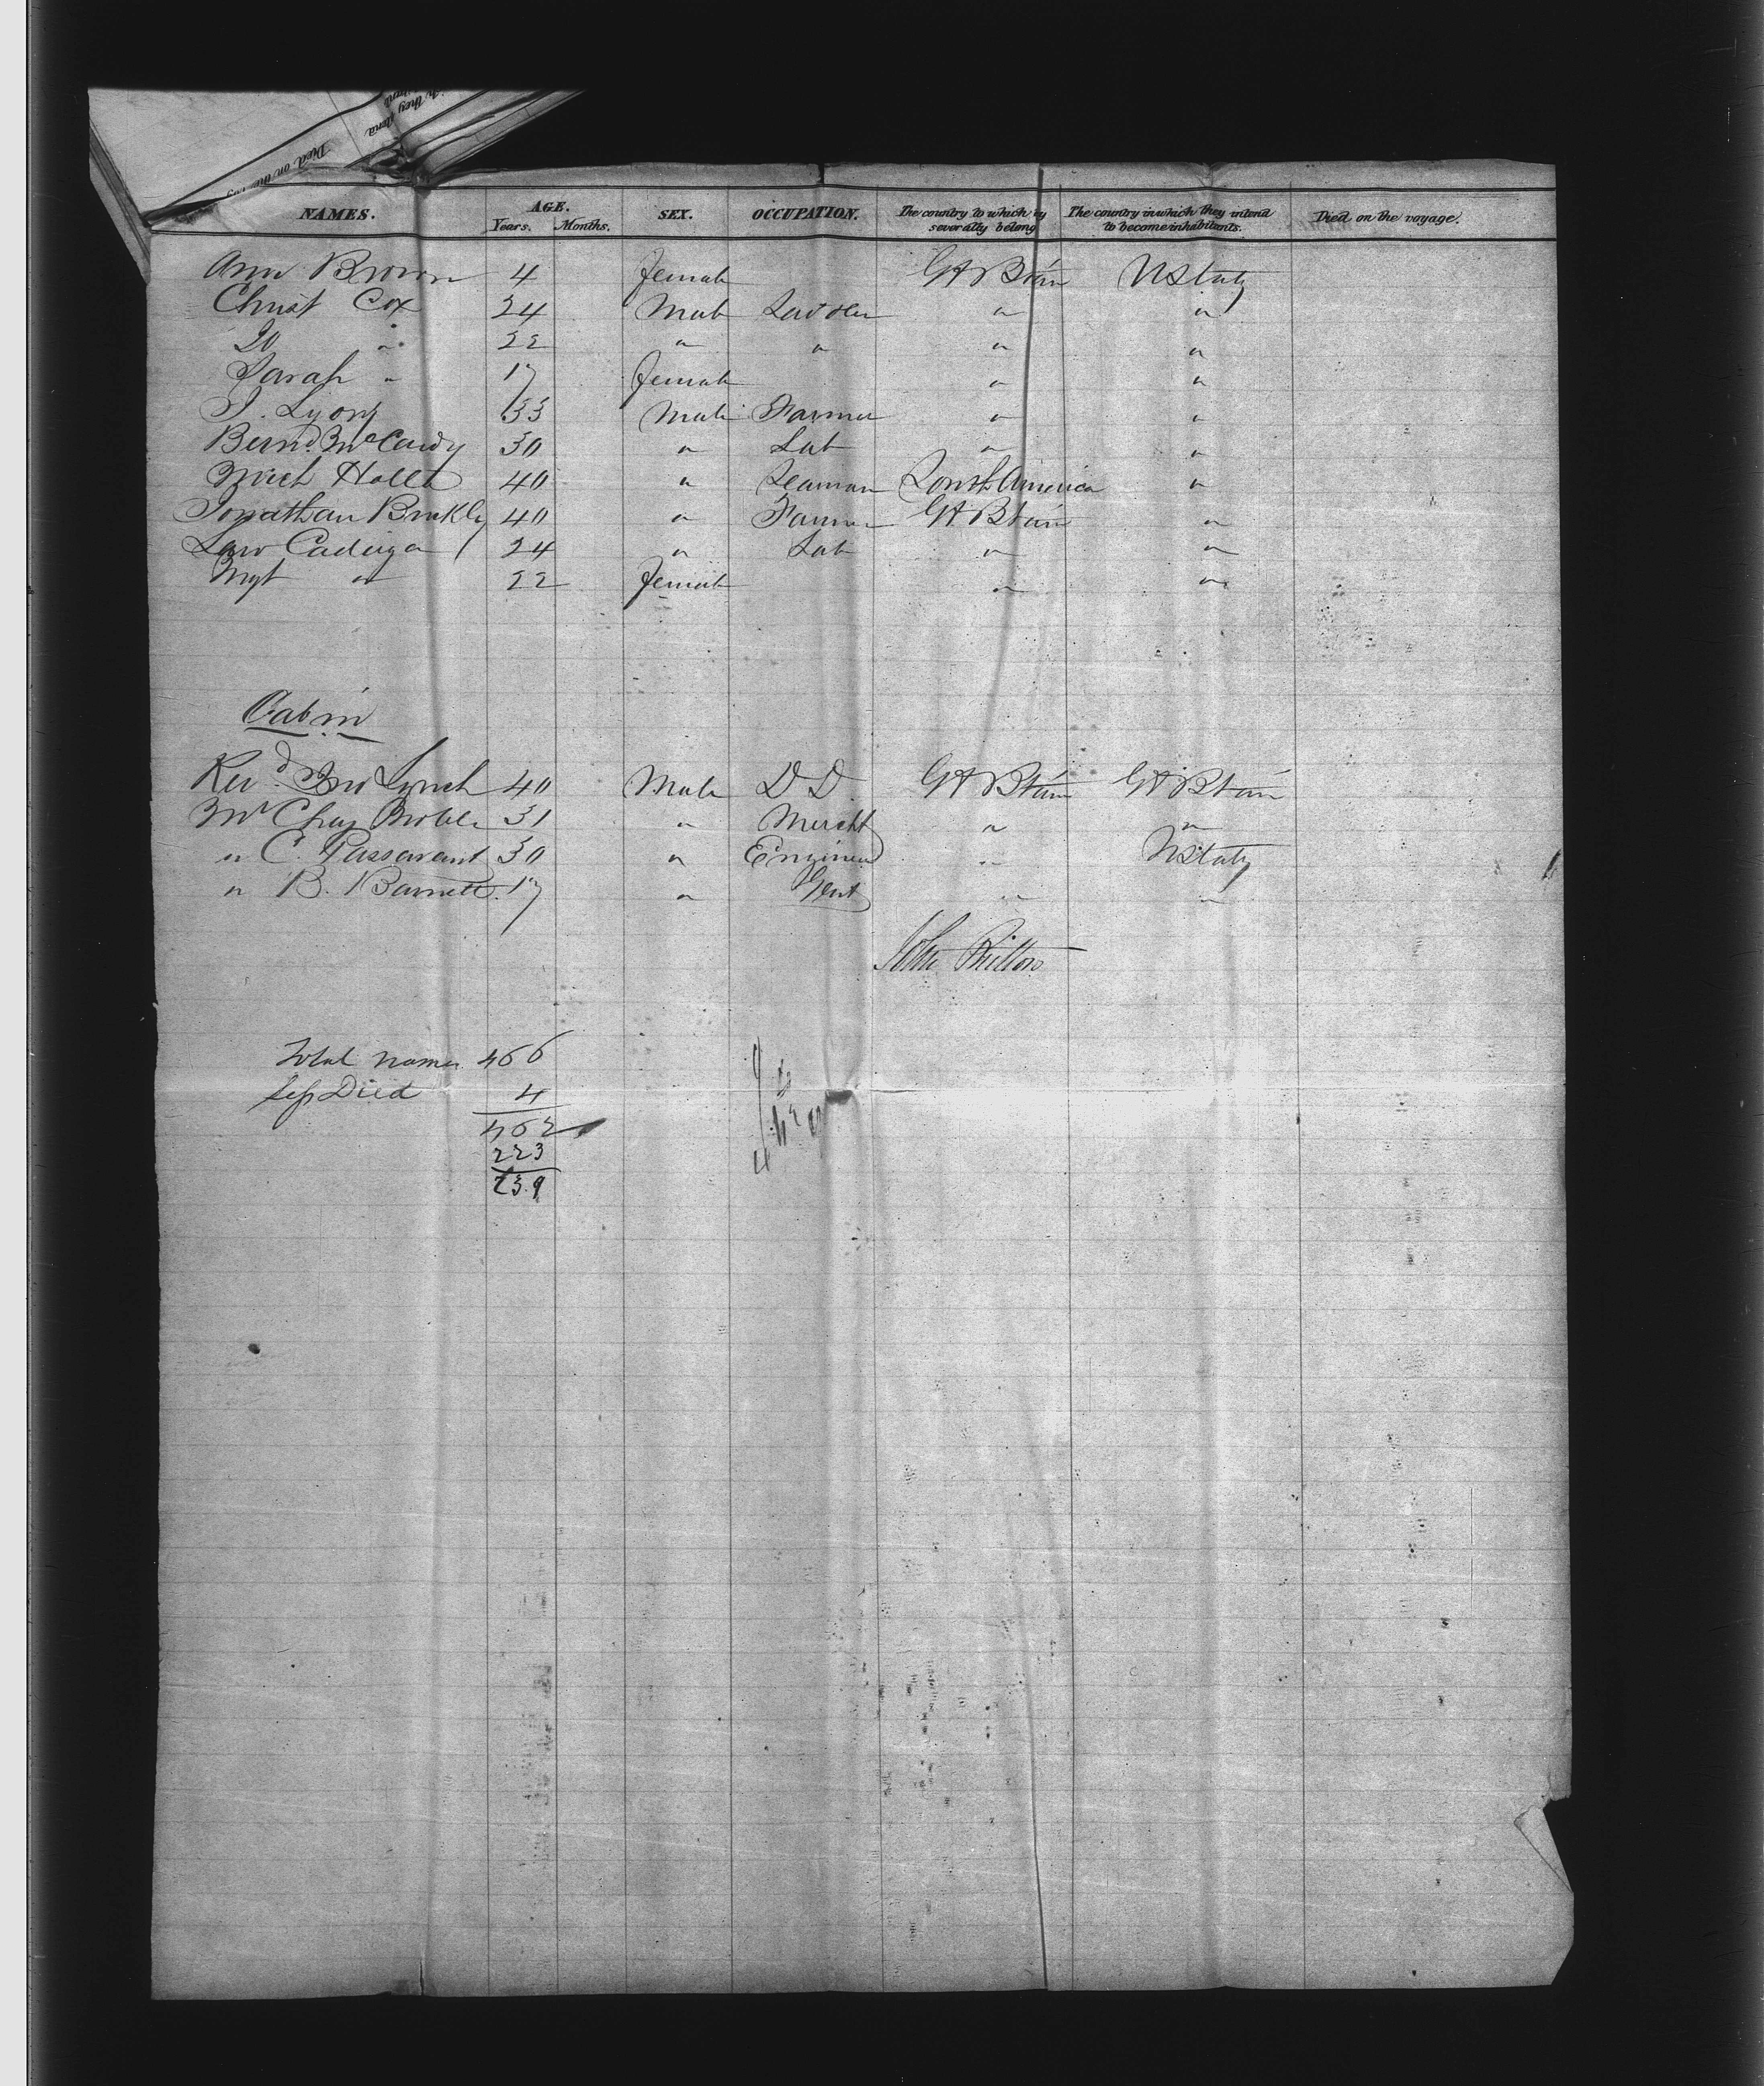 NAMES. AGE. Years. Months. SEX. OCCUPATION. The country to which they severally belong The country in which they intend to become inhabitants. Died on the voyage.
Ann Brown 4 Female Gt Btain UStates
Christ Cox 24 Male Saddler " "
Do " 22 " " " "
Sarah " 17 Female " "
J. Lyons 33 Male Farmer " "
Bernd. McCawy 30 " Lab " "
Mich Holla 40 " Seaman South America "
Jonathan Brukly 40 " Farmer Gt Btain "
Law Cadiga 24 " Lab " "
Mgt " 22 Female " "
Cabin
Revd. Jno Lynch 40 Male D D. Gt Btain Gt Btain
Mr Chas Noble 31 " Mercht " "
" C. Passavant 30 " Engineer " UStates
" B. Barnett. 17 " Gent " "
John Britton
Total names 466
Less Died 4
462
223
239